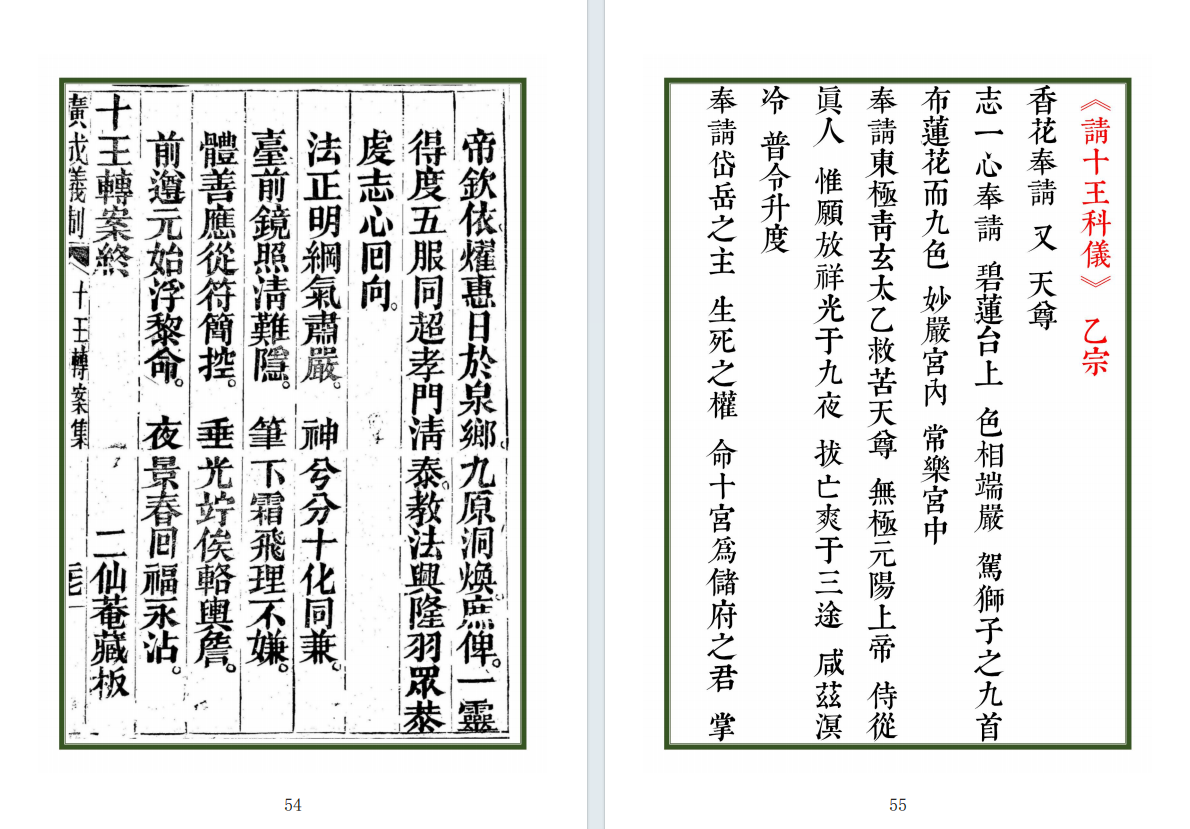 帝欽依。燿惠日於泉鄉。九原洞煥。庶俾。一靈
得度五服同超孝門清泰。教法興隆羽眾恭
虔志心回向。
法正明綱氣肅嚴。神兮分十化同兼。
臺前鏡照清難隱。筆下霜飛理不嫌。
體善應從符簡控。垂光竚俟輅輿詹。
前遵元始浮黎命。夜景春回福永沾。
十王轉案終 二仙菴藏板
廣成儀制 十王轉案集
54
《請十王科儀》 乙宗
香花奉請 又 天尊
志一心奉請 碧蓮台上 色相端嚴 駕獅子之九首
布蓮花而九色 妙嚴宮內 常樂宮中
奉請東極青玄太乙救苦天尊 無極元陽上帝 侍從
眞人 惟願放祥光于九夜 拔亡爽于三途 咸茲溟
冷 普令升度
奉請岱岳之主 生死之權 命十宮爲儲府之君 掌
55